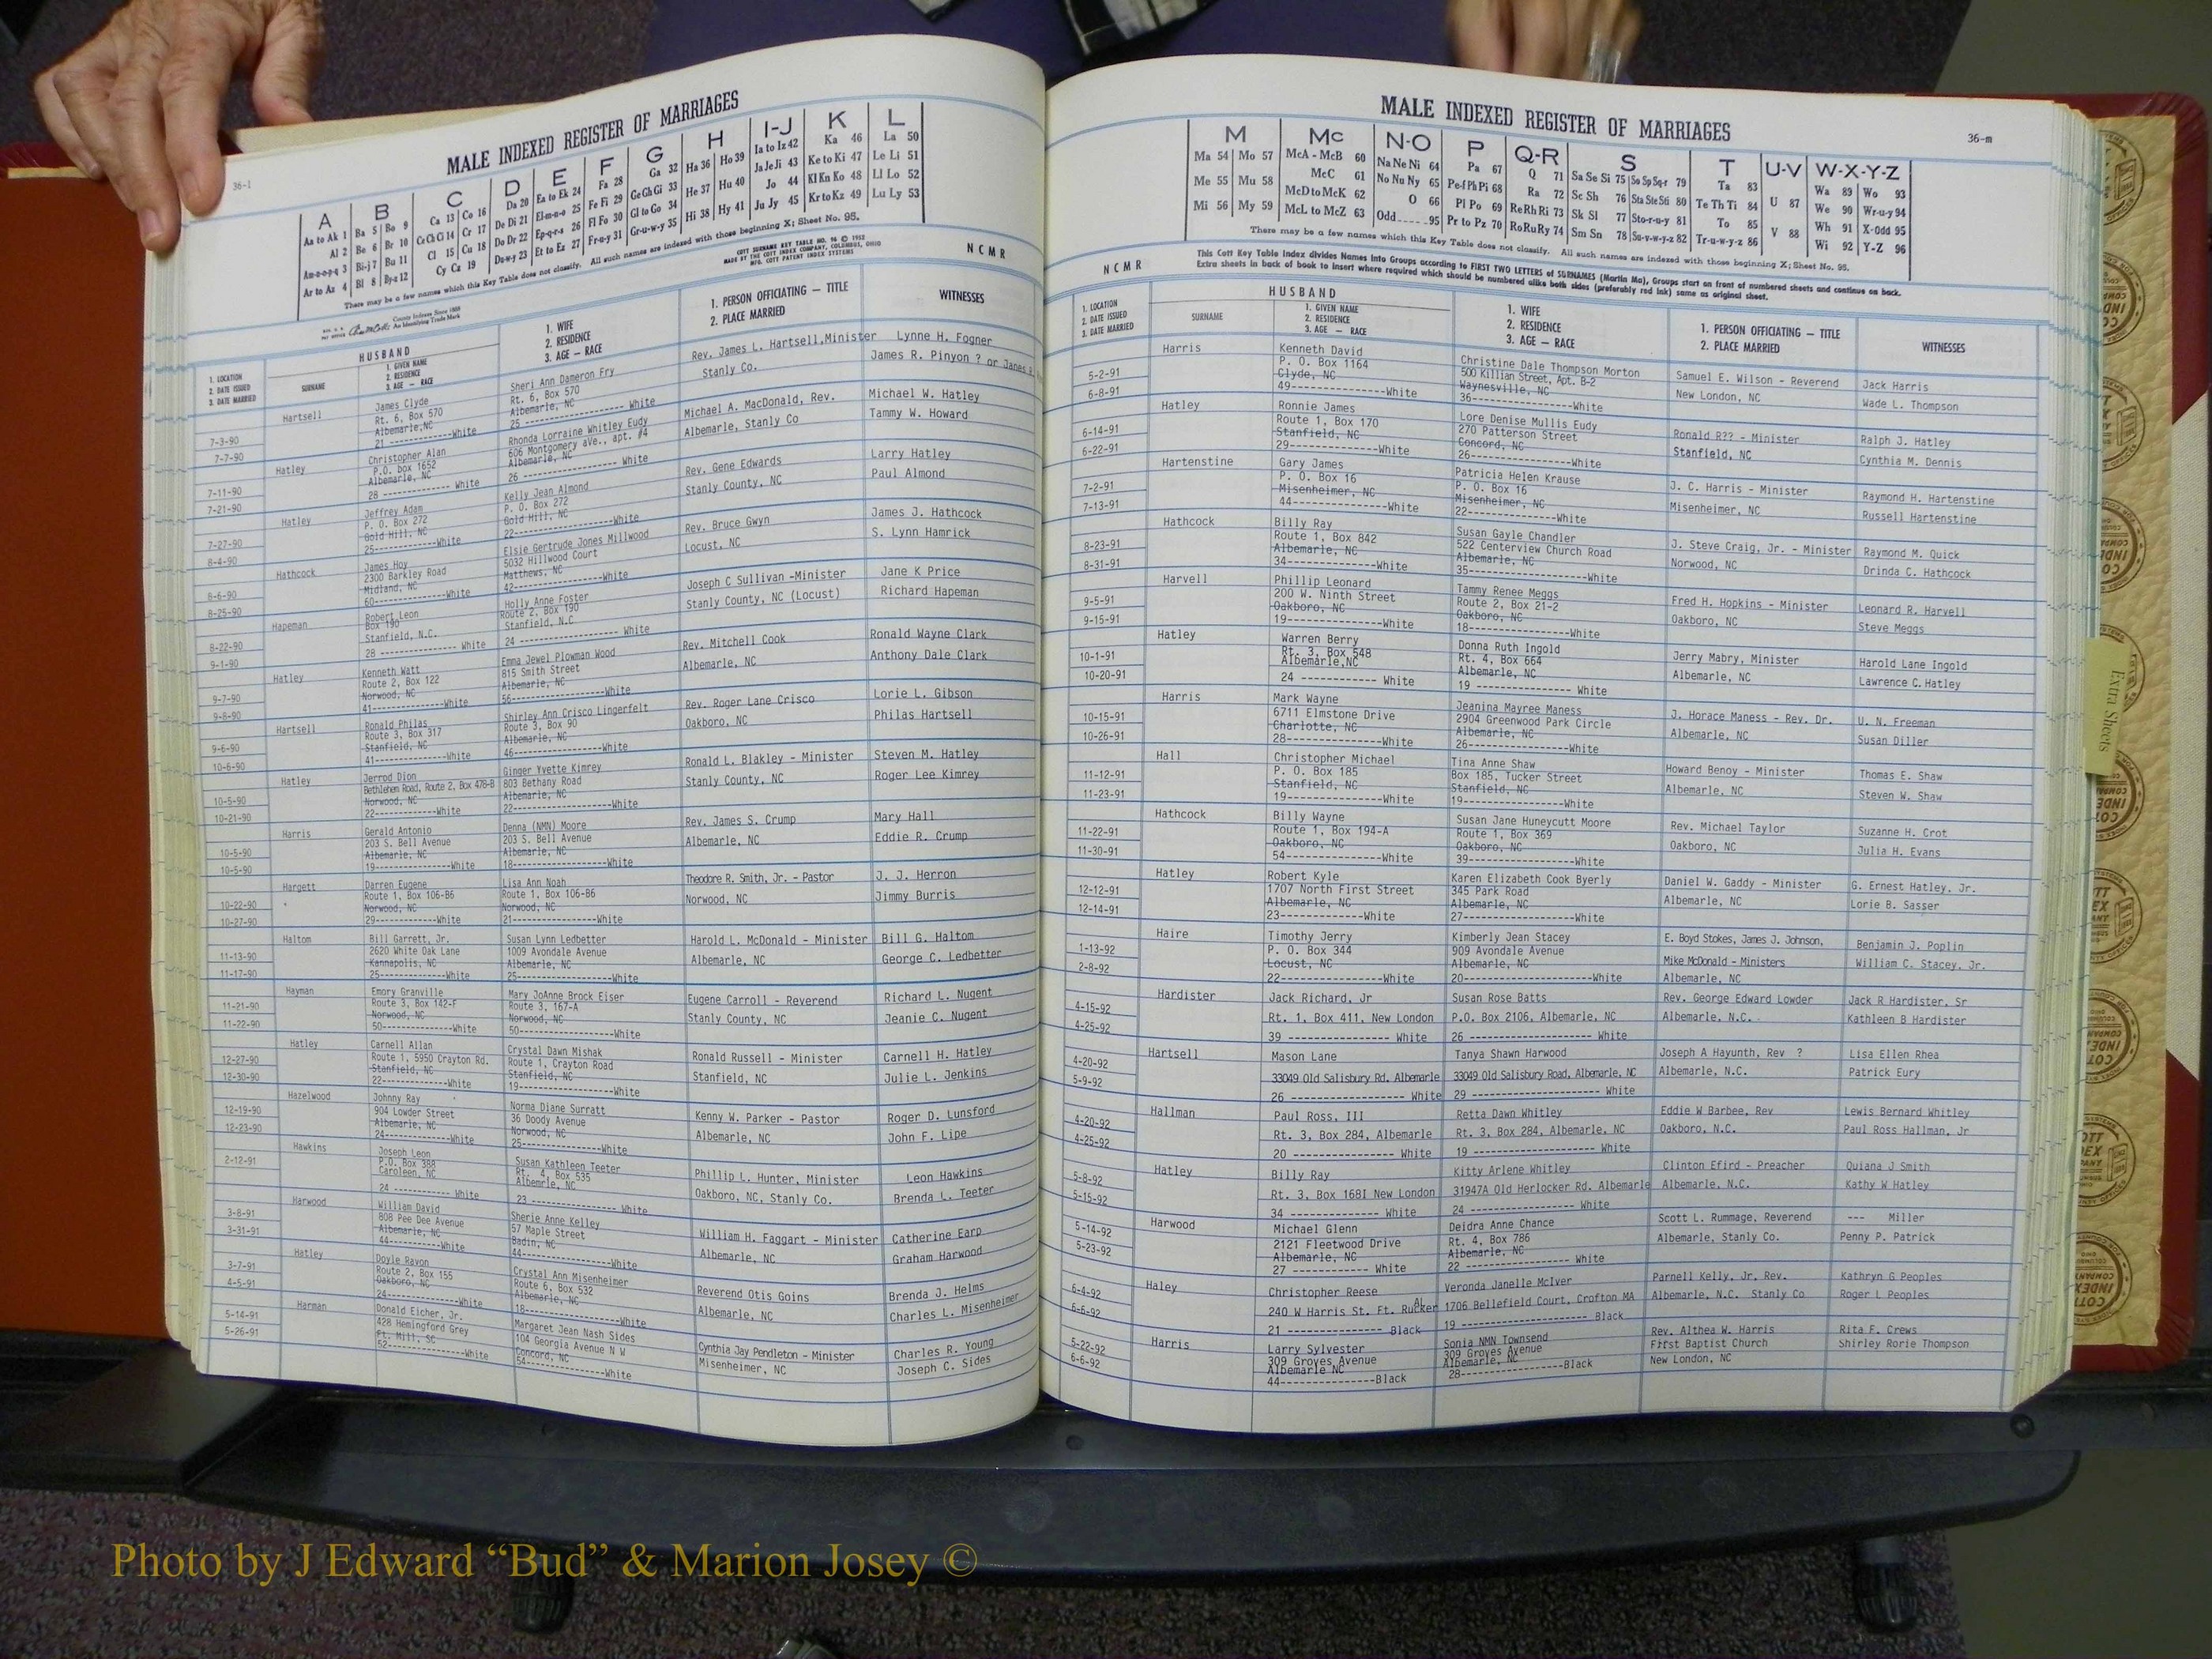 36-1
MALE INDEXED REGISTER OF MARRIAGES
A B C D E F G H I-J K L
Aa to Ak 1 Ba 5 Bo 9 Ca 13 Co 16 Da 20 Ea to Ek 24 Fa 28 Ga 32 Ha 36 Ho 39 Ia to Iz 42 Ka 46 La 50
Al 2 Be 6 Br 10 Ce Ch Ci 14 Cr 17 De Di 21 El-m-n-o 25 Fe Fi 29 Ge Gh Gi 33 He 37 Hu 40 Ja Je Ji 43 Ke to Ki 47 Le Li 51
Am-n-o-p-q 3 Bi-j 7 Bu 11 Cl 15 Cu 18 Do Dr 22 Ep-q-r-s 26 Fl Fo 30 Gl to Go 34 Hi 38 Hy 41 Jo 44 Kl Kn Ko 48 Ll Lo 52
Ar to Az 4 Bl 8 By-z 12 Cy Cz 19 Du-w-y 23 Et to Ez 27 Fr-u-y 31 Gr-u-w-y 35 Ju Jy 45 Kr to Kz 49 Lu Ly 53
There may be a few names which this Key Table does not classify. All such names are indexed with those beginning X; Sheet No. 95.
County Indexes Since 1888
An Identifying Trade Mark
COTT SURNAME KEY TABLE NO. 96 © 1952
MADE BY THE COTT INDEX COMPANY, COLUMBUS, OHIO
MFG. COTT PATENT INDEX SYSTEMS
N C M R
1. LOCATION
2. DATE ISSUED
3. DATE MARRIED
HUSBAND
SURNAME
1. GIVEN NAME
2. RESIDENCE
3. AGE — RACE
1. WIFE
2. RESIDENCE
3. AGE — RACE
1. PERSON OFFICIATING — TITLE
2. PLACE MARRIED
WITNESSES
Hartsell James Clyde Sheri Ann Dameron Fry Rev. James L. Hartsell,Minister Lynne H. Fogner
7-3-90 Rt. 6, Box 570 Rt. 6, Box 570 Stanly Co. James R. Pinyon ? or Janes
7-7-90 Albemarle,NC Albemarle, NC
21 ------------White 25 ------------------ White
Hatley Christopher Alan Rhonda Lorraine Whitley Eudy Michael A. MacDonald, Rev. Michael W. Hatley
7-11-90 P.O. box 1652 606 Montgomery aVe., apt. #4 Albemarle, Stanly Co Tammy W. Howard
7-21-90 Albemarle, NC Albemarle, NC
28 ------------ White 26 ------------------ White
Hatley Jeffrey Adam Kelly Jean Almond Rev. Gene Edwards Larry Hatley
7-27-90 P. O. Box 272 P. O. Box 272 Stanly County, NC Paul Almond
8-4-90 Gold Hill, NC Gold Hill, NC
25-------------White 22------------------White
Hathcock James Hoy Elsie Gertrude Jones Millwood Rev. Bruce Gwyn James J. Hathcock
8-6-90 2300 Barkley Road 5032 Hillwood Court Locust, NC S. Lynn Hamrick
8-25-90 Midland, NC Matthews, NC
60-------------White 42------------------White
Hapeman Robert Leon Holly Anne Foster Joseph C Sullivan -Minister Jane K Price
8-22-90 Box 190 Route 2, Box 190 Stanly County, NC (Locust) Richard Hapeman
9-1-90 Stanfield, N.C. Stanfield, N.C
28 -------------- White 24 ------------------ White
Hatley Kenneth Watt Emma Jewel Plowman Wood Rev. Mitchell Cook Ronald Wayne Clark
9-7-90 Route 2, Box 122 815 Smith Street Albemarle, NC Anthony Dale Clark
9-8-90 Norwood, NC Albemarle, NC
41-------------White 56-----------------White
Hartsell Ronald Philas Shirley Ann Crisco Lingerfelt Rev. Roger Lane Crisco Lorie L. Gibson
9-6-90 Route 3, Box 317 Route 3, Box 90 Oakboro, NC Philas Hartsell
10-6-90 Stanfield, NC Albemarle, NC
41-------------White 46-----------------White
Hatley Jerrod Dion Ginger Yvette Kimrey Ronald L. Blakley - Minister Steven M. Hatley
10-5-90 Bethlehem Road, Route 2, Box 478-B 803 Bethany Road Stanly County, NC Roger Lee Kimrey
10-21-90 Norwood, NC Albemarle, NC
22-------------White 22------------------White
Harris Gerald Antonio Denna (NMN) Moore Rev. James S. Crump Mary Hall
10-5-90 203 S. Bell Avenue 203 S. Bell Avenue Albemarle, NC Eddie R. Crump
10-5-90 Albemarle, NC Albemarle, NC
19-------------White 18------------------White
Hargett Darren Eugene Lisa Ann Noah Theodore R. Smith, Jr. - Pastor J. J. Herron
10-22-90 Route 1, Box 106-B6 Route 1, Box 106-B6 Norwood, NC Jimmy Burris
10-27-90 Norwood, NC Norwood, NC
29-------------White 21-----------------White
Haltom Bill Garrett, Jr. Susan Lynn Ledbetter Harold L. McDonald - Minister Bill G. Haltom
11-13-90 2620 White Oak Lane 1009 Avondale Avenue Albemarle, NC George C. Ledbetter
11-17-90 Kannapolis, NC Albemarle, NC
25-------------White 25------------------White
Hayman Emory Granville Mary JoAnne Brock Eiser Eugene Carroll - Reverend Richard L. Nugent
11-21-90 Route 3, Box 142-F Route 3, 167-A Stanly County, NC Jeanie C. Nugent
11-22-90 Norwood, NC Norwood, NC
50-------------White 50------------------White
Hatley Carnell Allan Crystal Dawn Mishak Ronald Russell - Minister Carnell H. Hatley
12-27-90 Route 1, 5950 Crayton Rd. Route 1, Crayton Road Stanfield, NC Julie L. Jenkins
12-30-90 Stanfield, NC Stanfield, NC
22-------------White 19------------------White
Hazelwood Johnny Ray Norma Diane Surratt Kenny W. Parker - Pastor Roger D. Lunsford
12-19-90 904 Lowder Street 36 Doody Avenue Albemarle, NC John F. Lipe
12-23-90 Albemarle, NC Norwood, NC
24-------------White 25----------------White
Hawkins Joseph Leon Susan Kathleen Teeter Phillip L. Hunter, Minister Leon Hawkins
2-12-91 P.O. Box 388 Rt. 4, Box 535 Oakboro, NC, Stanly Co. Brenda L. Teeter
Caroleen, NC Albemrle, NC
24 ------------- White 23 ------------------ White
Harwood William David Sherie Anne Kelley William H. Faggart - Minister Catherine Earp
3-8-91 808 Pee Dee Avenue 57 Maple Street Albemarle, NC Graham Harwood
3-31-91 Albemarle, NC Badin, NC
44-------------White 44------------------White
Hatley Doyle Ravon Crystal Ann Misenheimer Reverend Otis Goins Brenda J. Helms
3-7-91 Route 2, Box 155 Route 6, Box 532 Albemarle, NC Charles L. Misenheimer
4-5-91 Oakboro, NC Albemarle, NC
24-------------White 18------------------White
Harman Donald Eicher, Jr. Margaret Jean Nash Sides Cynthia Jay Pendleton - Minister Charles R. Young
5-14-91 428 Hemingford Grey 104 Georgia Avenue N W Misenheimer, NC Joseph C. Sides
5-26-91 Ft. Mill, SC Concord, NC
52-------------White 54-----------------White
MALE INDEXED REGISTER OF MARRIAGES
36-m
M Mc N-O P Q-R S T U-V W-X-Y-Z
Ma 54 Mo 57 McA - McB 60 Na Ne Ni 64 Pa 67 Q 71 Sa Se Si 75 So Sp Sq-r 79 Ta 83 U 87 Wa 89 Wo 93
Me 55 Mu 58 McC 61 No Nu Ny 65 Pe-f Ph Pi 68 Ra 72 Sc Sh 76 Sta Ste Sti 80 Te Th Ti 84 V 88 We 90 Wr-u-y 94
Mi 56 My 59 McD to McK 62 O 66 Pl Po 69 Re Rh Ri 73 Sk Sl 77 Sto-r-u-y 81 To 85 Wh 91 X-Odd 95
McL to McZ 63 Odd.....95 Pr to Pz 70 Ro Ru Ry 74 Sm Sn 78 Su-v-w-y-z 82 Tr-u-w-y-z 86 Wi 92 Y-Z 96
There may be a few names which this Key Table does not classify. All such names are indexed with those beginning X; Sheet No. 95.
This Cott Key Table Index divides Names into Groups according to FIRST TWO LETTERS of SURNAMES (Martin Ma), Groups start on front of numbered sheets and continue on back.
Extra sheets in back of book to insert where required which should be numbered alike both sides (preferably red ink) same as original sheet.
N C M R
1. LOCATION
2. DATE ISSUED
3. DATE MARRIED
HUSBAND
SURNAME
1. GIVEN NAME
2. RESIDENCE
3. AGE — RACE
1. WIFE
2. RESIDENCE
3. AGE — RACE
1. PERSON OFFICIATING — TITLE
2. PLACE MARRIED
WITNESSES
Harris Kenneth David Christine Dale Thompson Morton Samuel E. Wilson - Reverend Jack Harris
5-2-91 P. O. Box 1164 500 Killian Street, Apt. B-2 New London, NC Wade L. Thompson
6-8-91 Clyde, NC Waynesville, NC
49-------------White 36------------------White
Hatley Ronnie James Lore Denise Mullis Eudy Ronald R?? - Minister Ralph J. Hatley
6-14-91 Route 1, Box 170 270 Patterson Street Stanfield, NC Cynthia M. Dennis
6-22-91 Stanfield, NC Concord, NC
29-------------White 26------------------White
Hartenstine Gary James Patricia Helen Krause J. C. Harris - Minister Raymond H. Hartenstine
7-2-91 P. O. Box 16 P. O. Box 16 Misenheimer, NC Russell Hartenstine
7-13-91 Misenheimer, NC Misenheimer, NC
44-------------White 22----------------White
Hathcock Billy Ray Susan Gayle Chandler J. Steve Craig, Jr. - Minister Raymond M. Quick
8-23-91 Route 1, Box 842 522 Centerview Church Road Norwood, NC Drinda C. Hathcock
8-31-91 Albemarle, NC Albemarle, NC
34-------------White 35----------------White
Harvell Phillip Leonard Tammy Renee Meggs Fred H. Hopkins - Minister Leonard R. Harvell
9-5-91 200 W. Ninth Street Route 2, Box 21-2 Oakboro, NC Steve Meggs
9-15-91 Oakboro, NC Oakboro, NC
19-------------White 18------------------White
Hatley Warren Berry Donna Ruth Ingold Jerry Mabry, Minister Harold Lane Ingold
10-1-91 Rt. 3, Box 548 Rt. 4, Box 664 Albemarle, NC Lawrence C. Hatley
10-20-91 Albemarle,NC Albemarle, NC
24 ------------ White 19 ---------------- White
Harris Mark Wayne Jeanina Mayree Maness J. Horace Maness - Rev. Dr. U. N. Freeman
10-15-91 6711 Elmstone Drive 2904 Greenwood Park Circle Albemarle, NC Susan Diller
10-26-91 Charlotte, NC Albemarle, NC
28-------------White 26------------------White
Hall Christopher Michael Tina Anne Shaw Howard Benoy - Minister Thomas E. Shaw
11-12-91 P. O. Box 185 Box 185, Tucker Street Albemarle, NC Steven W. Shaw
11-23-91 Stanfield, NC Stanfield, NC
19-------------White 19----------------White
Hathcock Billy Wayne Susan Jane Huneycutt Moore Rev. Michael Taylor Suzanne H. Crot
11-22-91 Route 1, Box 194-A Route 1, Box 369 Oakboro, NC Julia H. Evans
11-30-91 Oakboro, NC Oakboro, NC
54-------------White 39------------------White
Hatley Robert Kyle Karen Elizabeth Cook Byerly Daniel W. Gaddy - Minister G. Ernest Hatley, Jr.
12-12-91 1707 North First Street 345 Park Road Albemarle, NC Lorie B. Sasser
12-14-91 Albemarle, NC Albemarle, NC
23-------------White 27------------------White
Haire Timothy Jerry Kimberly Jean Stacey E. Boyd Stokes, James J. Johnson, Benjamin J. Poplin
1-13-92 P. O. Box 344 909 Avondale Avenue Mike McDonald - Ministers William C. Stacey, Jr.
2-8-92 Locust, NC Albemarle, NC Albemarle, NC
22-------------White 20------------------White
Hardister Jack Richard, Jr Susan Rose Batts Rev. George Edward Lowder Jack R Hardister, Sr
4-15-92 Rt. 1, Box 411, New London P.O. Box 2106, Albemarle, NC Albemarle, N.C. Kathleen B Hardister
4-25-92 39 -------------- White 26 ------------------ White
Hartsell Mason Lane Tanya Shawn Harwood Joseph A Hayunth, Rev ? Lisa Ellen Rhea
4-20-92 33049 Old Salisbury Rd. Albemarle 33049 Old Salisbury Road, Albemarle, NC Albemarle, N.C. Patrick Eury
5-9-92 26 --------------- White 29 ------------------ White
Hallman Paul Ross, III Retta Dawn Whitley Eddie W Barbee, Rev Lewis Bernard Whitley
4-20-92 Rt. 3, Box 284, Albemarle Rt. 3, Box 284, Albemarle, NC Oakboro, N.C. Paul Ross Hallman, Jr
4-25-92 20 --------------- White 19 ------------------ White
Hatley Billy Ray Kitty Arlene Whitley Clinton Efird - Preacher Quiana J Smith
5-8-92 Rt. 3, Box 168I New London 31947A Old Herlocker Rd. Albemarle Albemarle, N.C. Kathy W Hatley
5-15-92 34 --------------- White 24 ---------------- White
Harwood Michael Glenn Deidra Anne Chance Scott L. Rummage, Reverend --- Miller
5-14-92 2121 Fleetwood Drive Rt. 4, Box 786 Albemarle, Stanly Co. Penny P. Patrick
5-23-92 Albemarle, NC Albemarle, NC
27 ------------ White 22 ---------------- White
Haley Christopher Reese Veronda Janelle McIver Parnell Kelly, Jr. Rev. Kathryn G Peoples
6-4-92 240 W Harris St. Ft. Rucker AL 1706 Bellefield Court, Crofton MA Albemarle, N.C. Stanly Co Roger L Peoples
6-6-92 21 ---------------- Black 19 ------------------ Black
Harris Larry Sylvester Sonia NMN Townsend Rev. Althea W. Harris Rita F. Crews
5-22-92 309 Groves Avenue 309 Groves Avenue First Baptist Church Shirley Rorie Thompson
6-6-92 Albemarle NC Albemarle, NC New London, NC
44---------------Black 28---------------Black
Extra Sheets
Photo by J Edward “Bud” & Marion Josey ©